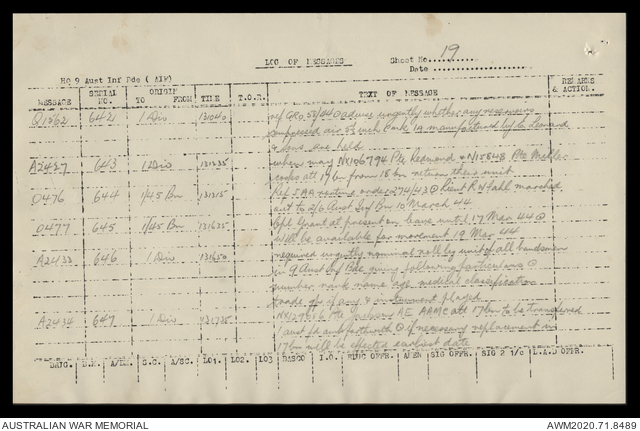 LOG OF MESSAGES Sheet No. 19
Date
HQ 9 Aust Inf Bde (AIF)
MESSAGE SERIAL NO. ORIGIN TO FROM TIME T.O.R. TEXT OF MESSAGE REMARKS & ACTION.
Q1562 642 1 Div 131040 ref GRO 58/44 advise urgently whether any
manufactured by C Leonard
& Sons are held
A2437 643 1 Div 131535 when may NX106794 Pte Redmond & N15848 Pte
att 17 bn from 18 bn return their unit
O476 644 1/45 Bn 131315 Lieut R N marched
out to 2/6 Aust Inf Bn 10 March 44
O477 645 1/45 Bn 131625 Capt Grant at present on leave until 17 Mar 44
will be available for movement 19 Mar 44
A2433 646 1 Div 131650 required urgently nominal roll by unit of all bandsmen
in 9 Aust Inf Bde giving following particulars
number rank name age medical classification
trade gp if any & instrument played
A2434 647 1 Div 131735 Pte AE AAMC att 17 bn to be transferred
1 aust fd amb forthwith if necessary replacement in
17 bn will be effected earliest date
S.C. A/SC. LO1. LO2. LO3 BASCO I.O. OFFR. A/EW OFFR SIG OFFR SIG 2 I/C L.A.D OFFR.
AUSTRALIAN WAR MEMORIAL AWM2020.71.8489